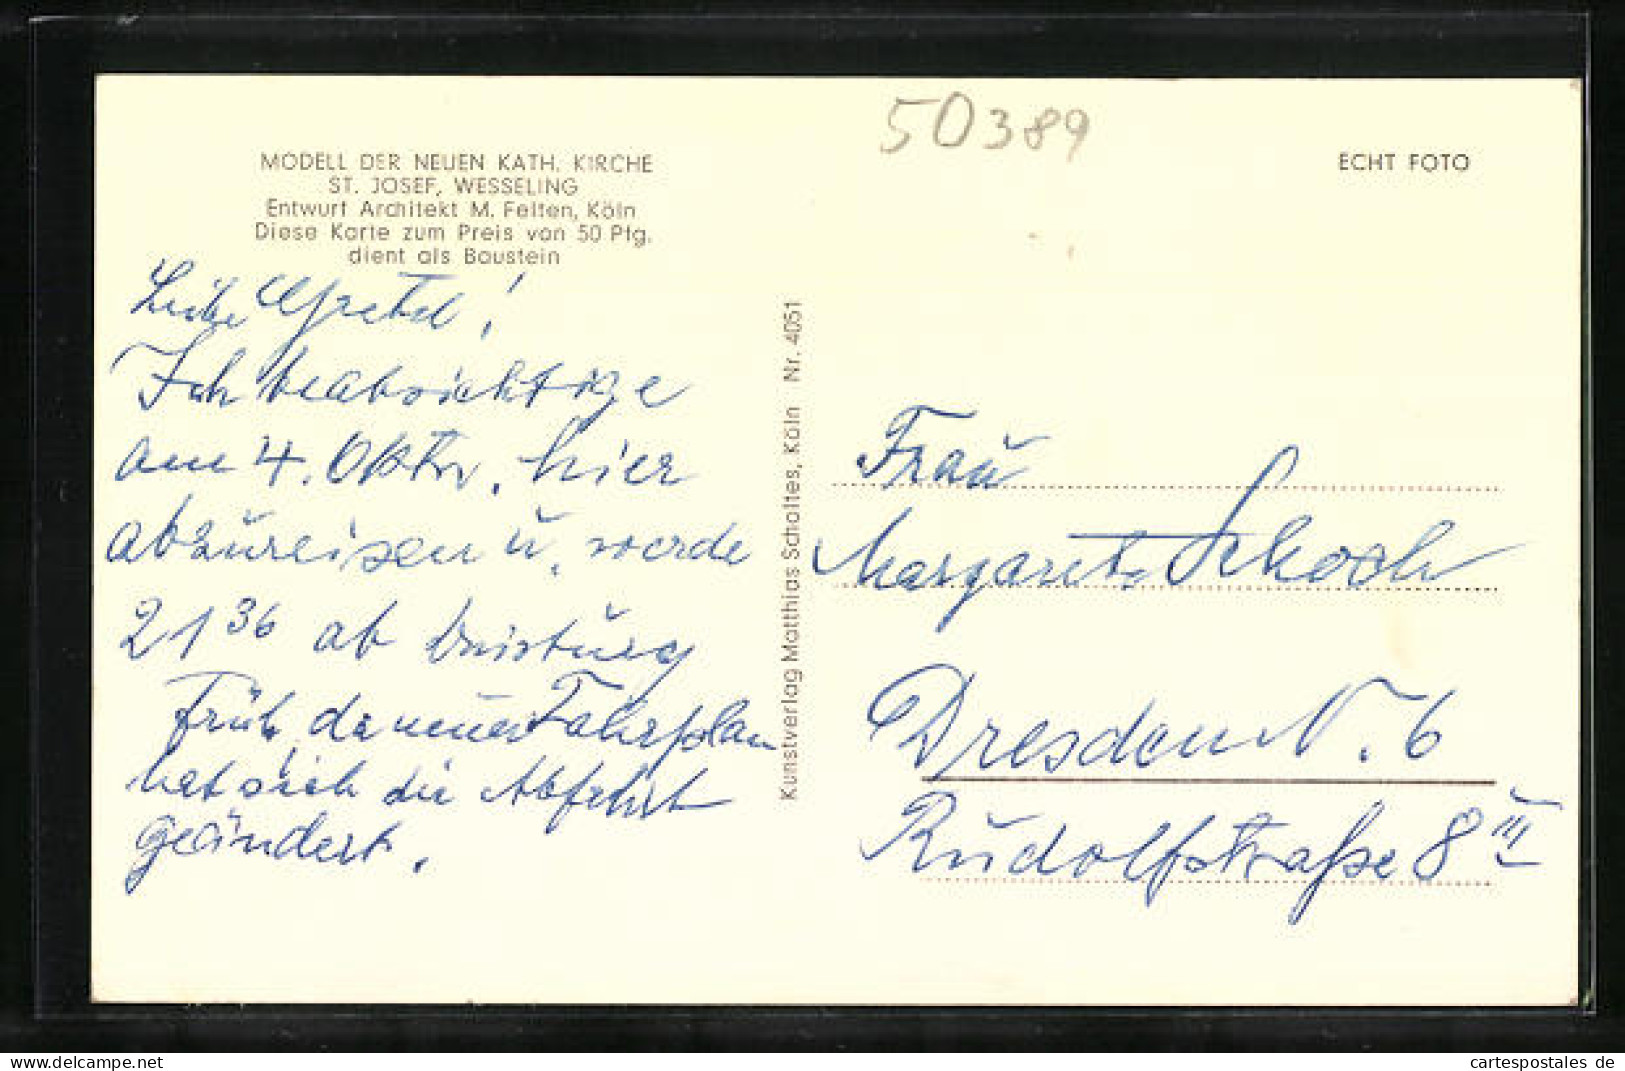 50389
MODELL DER NEUEN KATH. KIRCHE
ST. JOSEF, WESSELING
Entwurf Architekt M. Felten, Köln
Diese Karte zum Preis von 50 Pfg.
dient als Baustein
ECHT FOTO
Liebe Gretel!
Ich beabsichtige
am 4. Oktbr. hier
abzureisen u. werde
21 36 ab Duisburg
Früh, da neuer Fahrplan
hat sich die Abfahrt
geändert.
Kunstverlag Matthias Scholtes, Köln Nr. 4051
Frau
Margarete Schoch
Dresden N. 6
Rudolfstraße 8 III
cartespostales de